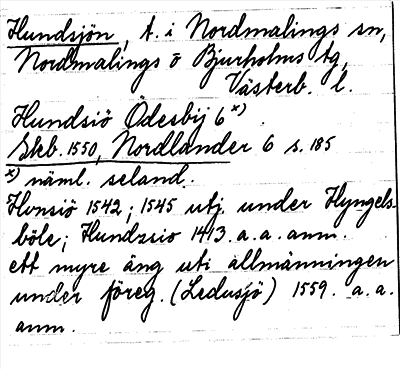 Hundsjön, t. i Nordmalings sn,
Nordmalings o Bjurholms tg,
Västerb. l.
Hundsiö Ödesbij 6 x)
Skb. 1550, Nordlander 6 s. 185
x) näml. seland.
Honsiö 1542; 1545 utj. under Hyngels-
böle; Hundzsiö 1413. a. a. anm.
ett myre äng uti allmänningen
under föreg. (Ledusjö) 1559. a. a.
anm.